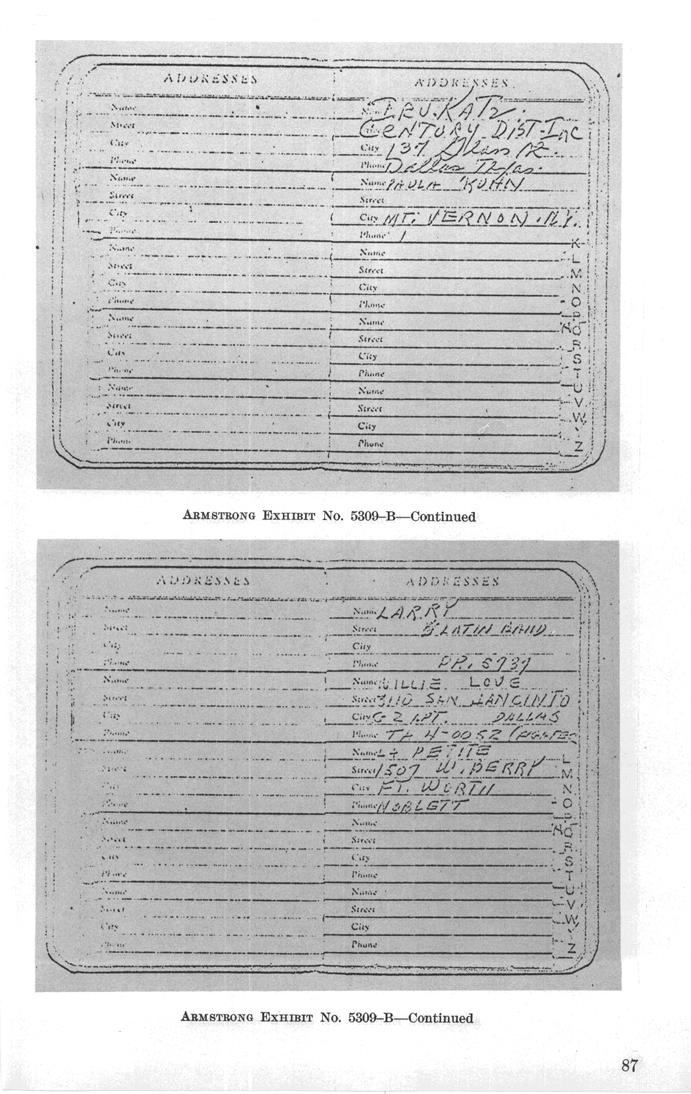 ADDRESSES
ADDRESSES
Name
Street
City
Phone
Name
Street
City
Phone
Name
Street
City
Phone
Name
Street
City
Phone
Name
Street
City
Phone
Name IRV. KATZ.
CENTURY DIST-INC
City 137
Phone Dallas Texas.
Name PAULA KOHN
Street
City MT. VERNON. N.Y.
Phone
Name
Street
City
Phone
Name
Street
City
Phone
Name
Street
City
Phone
K
L
M
N
O
P
Q
R
S
T
U
V
W
Z
ARMSTRONG EXHIBIT No. 5309–B—Continued
ADDRESSES
ADDRESSES
Name
Street
City
Phone
Name
Street
City
Phone
Name
Street
City
Phone
Name
Street
City
Phone
Name
Street
City
Phone
Name LARRY
Street LATIN BAND
City
Phone 5737
Name WILLIE LOVE
Street 3110 SAN JANCINTO
City G 2 APT. DALLAS
Phone TA 4-0052
Name LA PETITE
Street 1507 W. BERRY
City FT. WORTH
Phone NOBLETT
Name
Street
City
Phone
Name
Street
City
Phone
L
M
N
O
P
Q
R
S
T
U
V
W
Z
ARMSTRONG EXHIBIT No. 5309–B—Continued
87